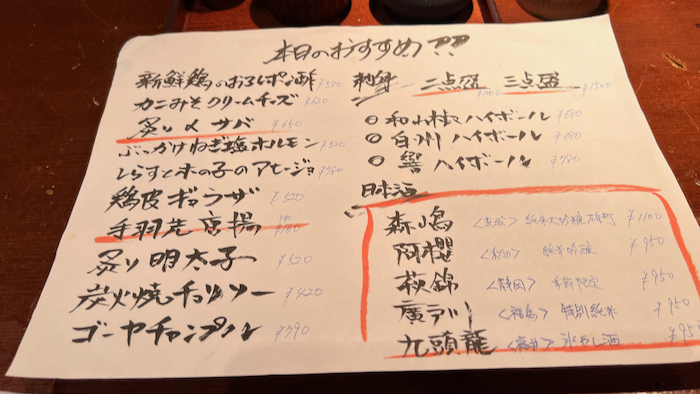 本日のおすすめ??
新鮮鶏のおろしポン酢 ¥550
カニみそクリームチーズ ¥620
炙り〆サバ ¥650
ぶっかけねぎ塩ホルモン ¥520
しらすと木の子のアヒージョ ¥780
鶏皮ギョウザ ¥520
手羽先唐揚
炙り明太子 ¥520
炭火焼チョリソー ¥420
ゴーヤチャンプル ¥790
刺身 二点盛 三点盛 ¥1500
ハイボール ¥680
白州ハイボール ¥680
響ハイボール ¥780
日本酒
森嶋 <茨城> 純米大吟醸 雄町 ¥1100
阿櫻 <秋田> 純米吟醸 ¥950
萩錦 <静岡> 季節限定 ¥950
廣戸川 <福島> 特別純米 ¥950
九頭龍 <福井> 氷やし酒